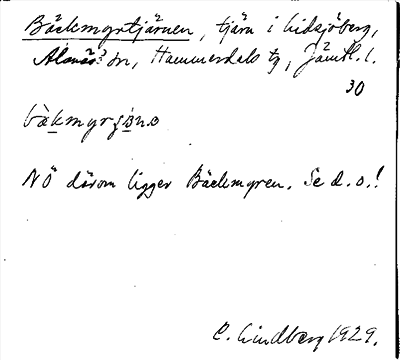 Bäckmyrtjärnen, tjärn i Lidsjöberg,
Alanäs sn, Hammerdals tg, Jämtl. l.
30
NÖ därom ligger Bäckmyren. Se d. o.!
C. Lindberg 1929.